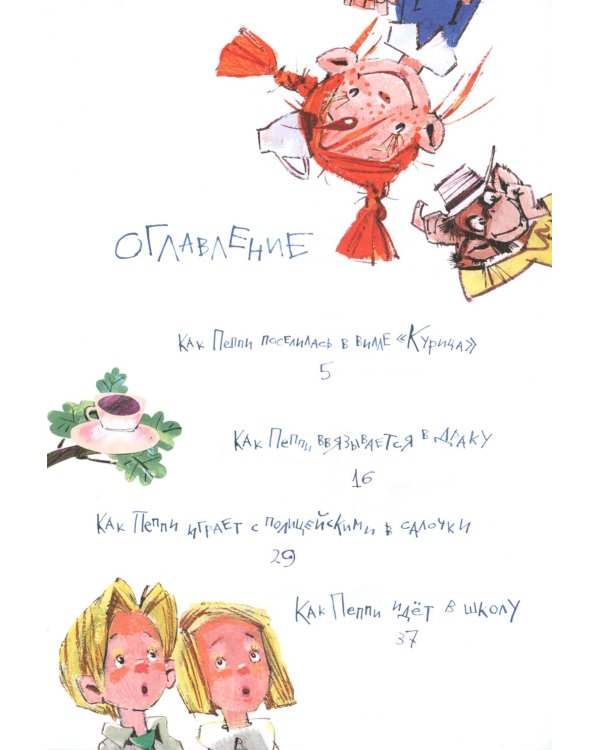 Оглавление
Как Пеппи поселилась в вилле «Курица»
5
Как Пеппи ввязывается в драку
16
Как Пеппи играет с полицейскими в салочки
29
Как Пеппи идёт в школу
37